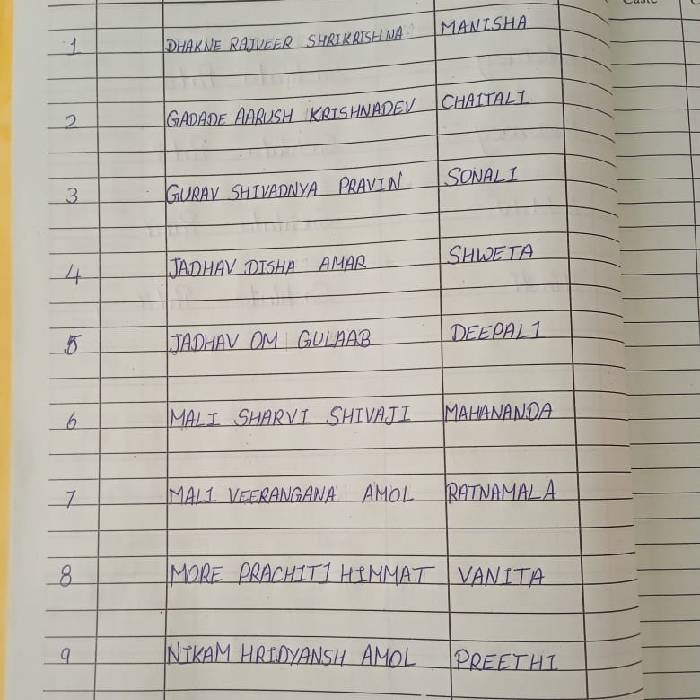 Caste
1 DHAKNE RAJVEER SHRIKRISHNA MANISHA
2 GADADE AARUSH KRISHNADEV CHAITALI
3 GURAV SHIVADNYA PRAVIN SONALI
4 JADHAV DISHA AMAR SHWETA
5 JADHAV OM GULAAB DEEPALI
6 MALI SHARVI SHIVAJI MAHANANDA
7 MALI VEERANGANA AMOL RATNAMALA
8 MORE PRACHITI HIMMAT VANITA
9 NIKAM HRIDYANSH AMOL PREETHI